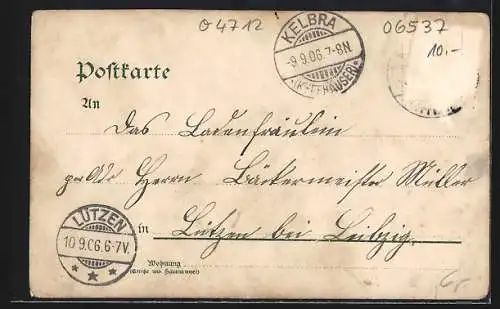 Θ 4712
06537
10.-
KELBRA
-9.9.06.7-8N
(KYFFHÄUSER)
Postkarte
An
Das Ladenfräulein
per Adr Herrn Bäckermeister Müller
in Lützen bei Leibzig.
LÜTZEN
10.9.06.6-7V.
Wohnung
(Straße und Hausnummer)